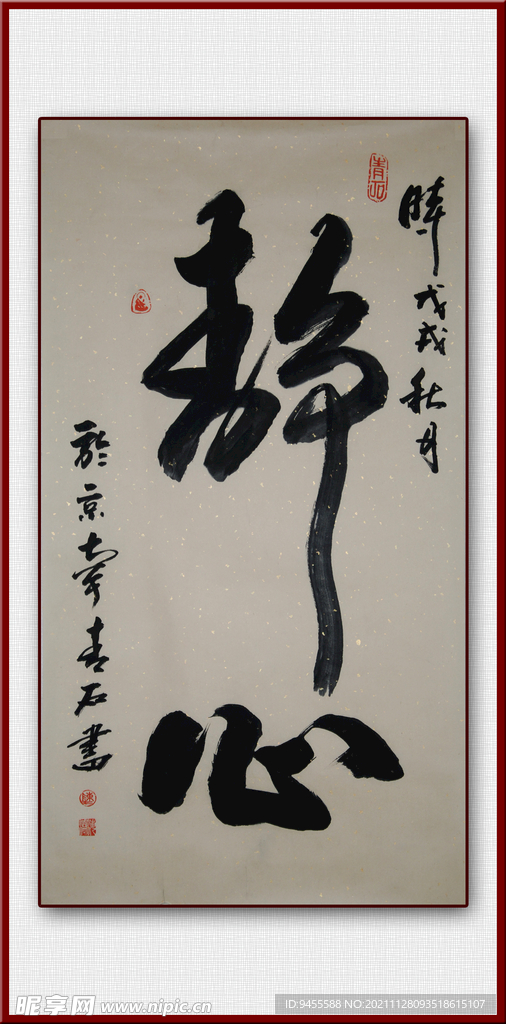 時戊戌秋月
靜心
於京
青石書
青石
昵享网 www.nipic.cn
ID:9455588 NO:20211128093518615107